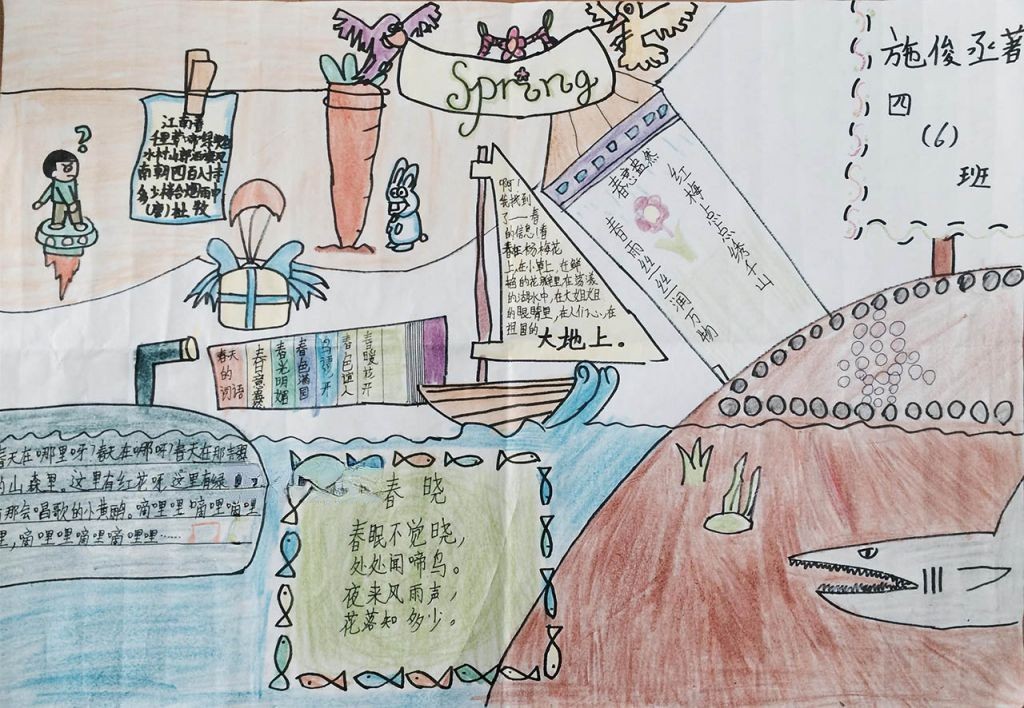 Spring
施俊丞著
四
(6)
班
江南春
千里莺啼绿映
水村山郭酒旗风
南朝四百八十寺
多少楼台烟雨中
(唐)杜牧
啊!
我找到
了——春
的信息!春
春在杨梅花
上,在小草上,在鲜
的花瓣里在荡漾
的湖水中,在大姐姐
的眼睛里,在人们心心,在
祖国的
大地上。
春意盎然
红梅点点绣千山
春雨丝丝润万物
春天的词语
春意盎
春光明媚
春色满园
鸟语 开
春色迷人
春暖花开
春天在哪里呀?春天在哪呀?春天在那青翠
的山森里。这里有红花呀这里有绿
那会唱歌的小黄鹂。嘀哩哩嘀哩嘀哩
哩,嘀哩哩嘀哩嘀哩哩……
春晓
春眠不觉晓,
处处闻啼鸟。
夜来风雨声,
花落知多少。